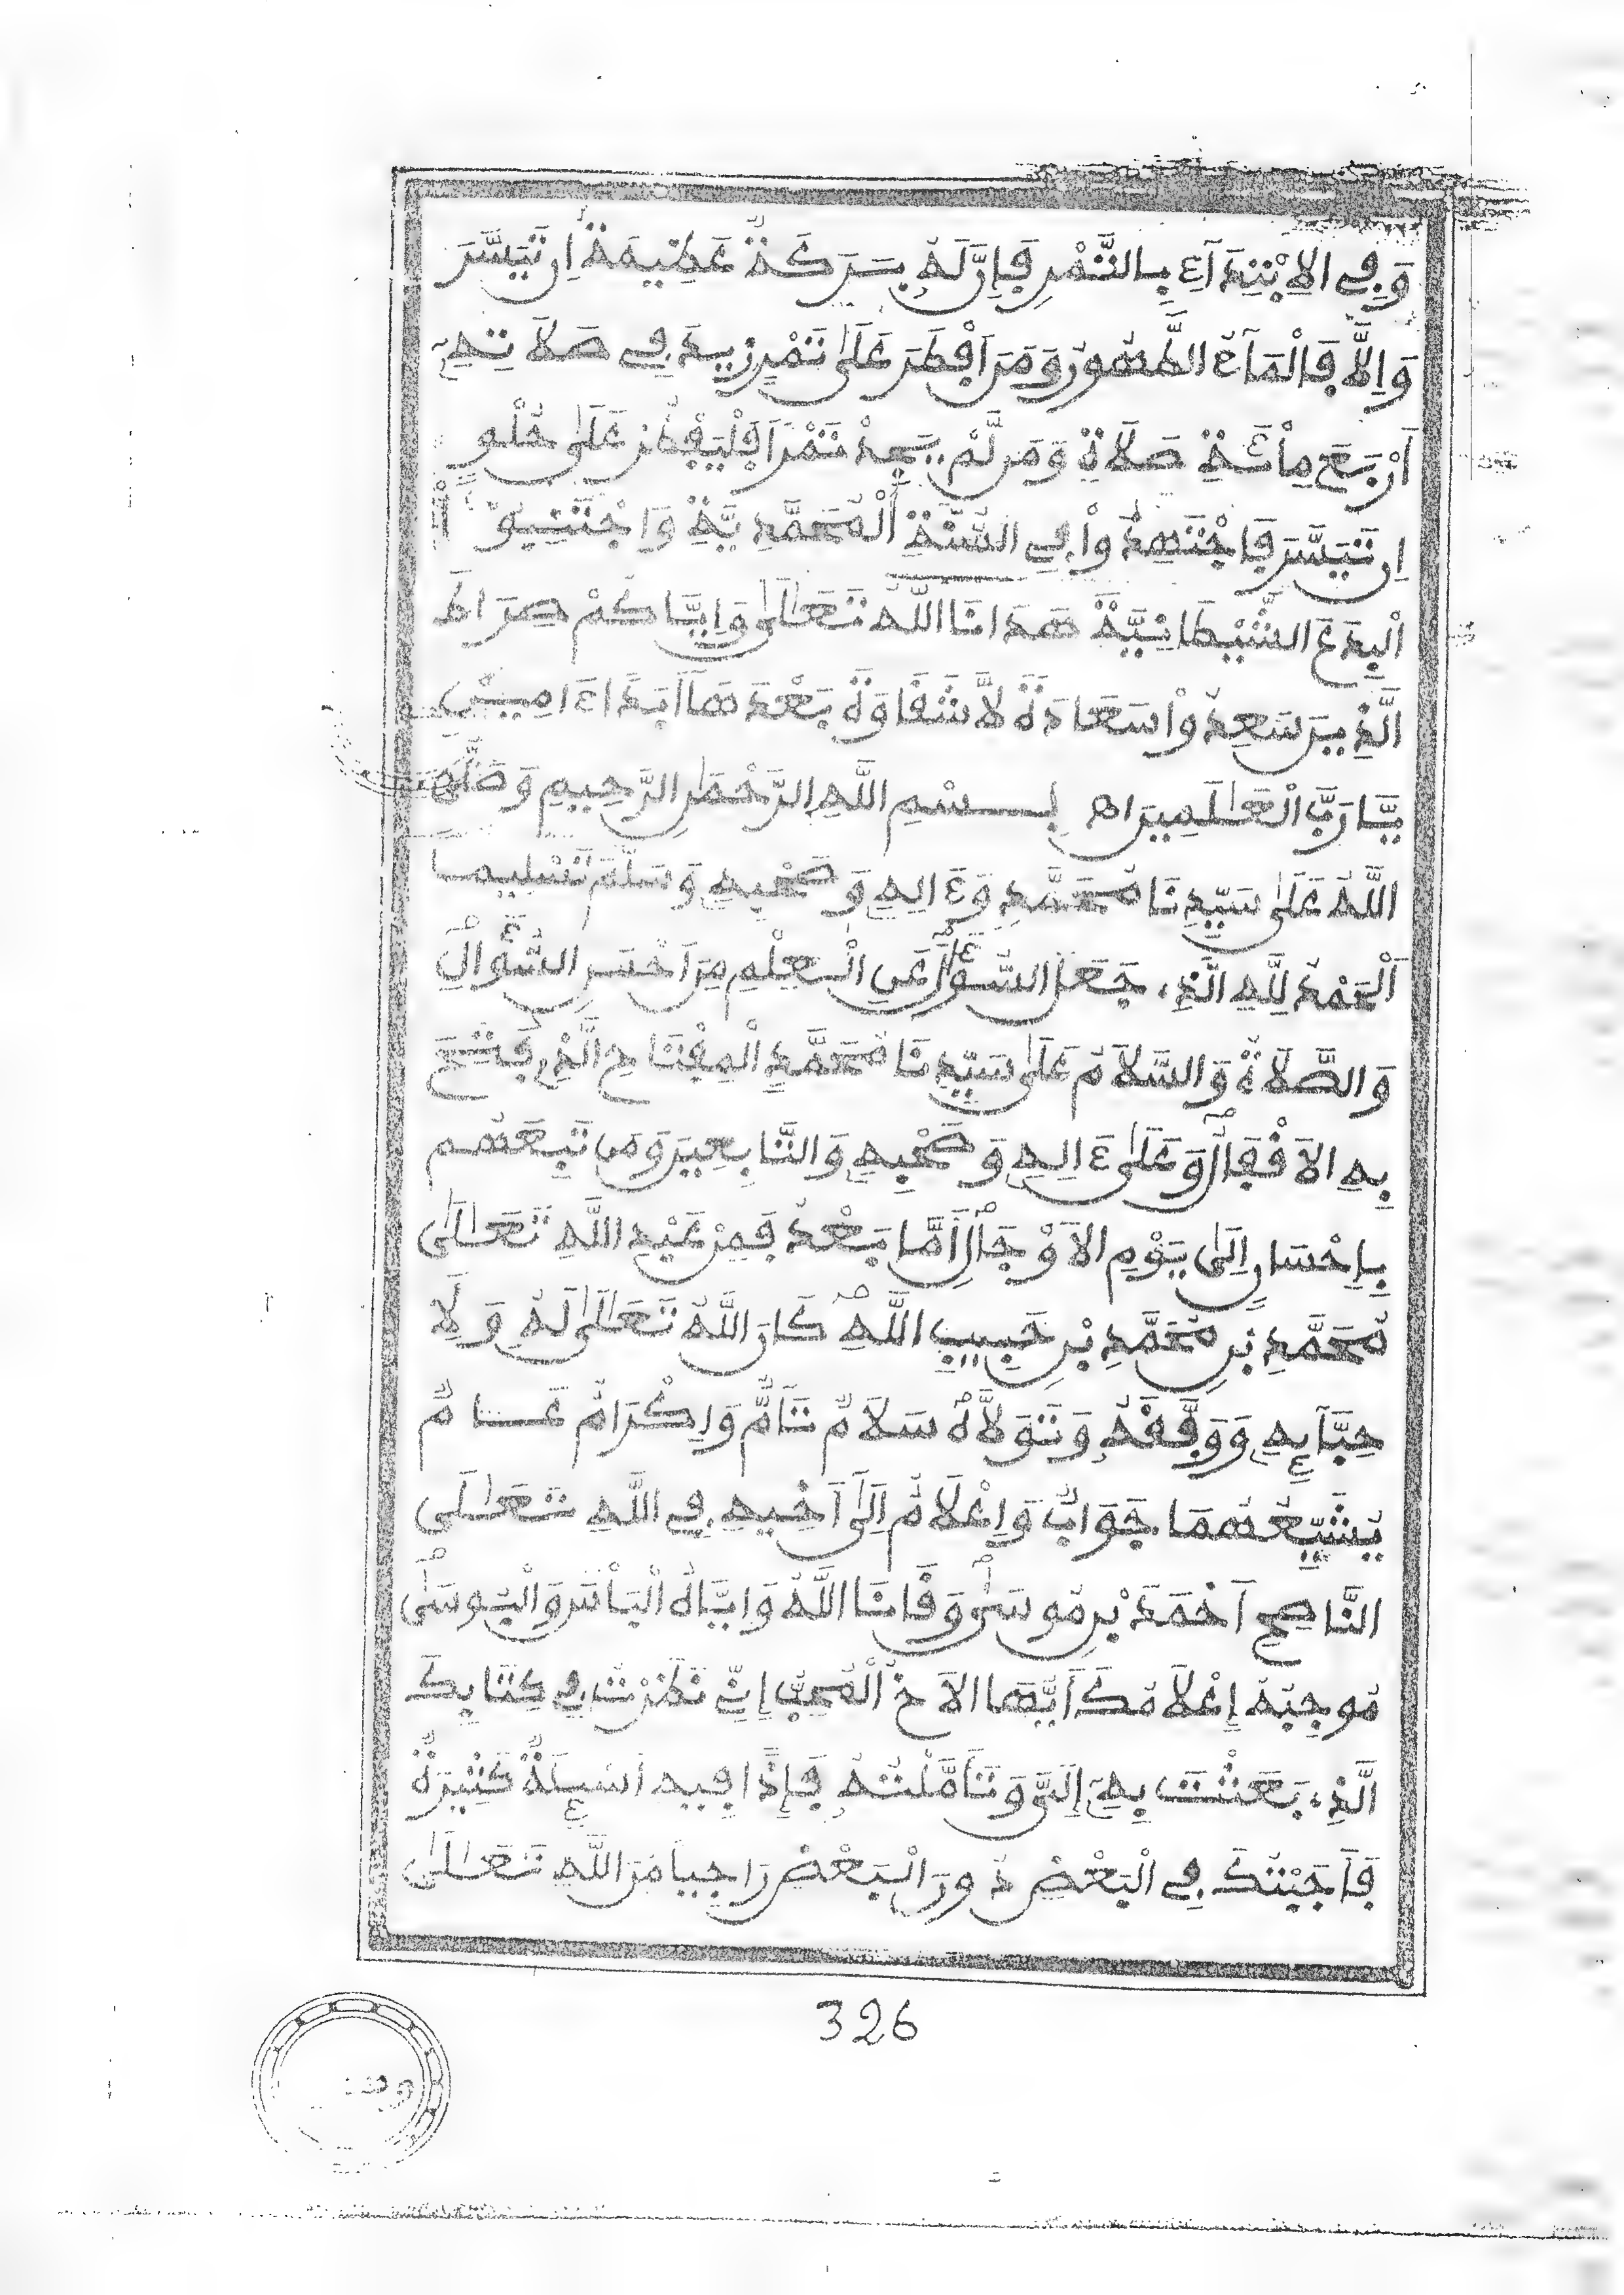 وَفِي الِابْتِدَآءِ بِالتَّمْرِ فَإِنَّ لَهُ بَرَكَةً عَظِيمَةً إِن تَيَسَّرَ
وَإِلَّا فَالْمَآءُ الطَّهُورُ وَمَنَ اَفْطَرَ عَلَى تَمْرٍ زِيدَ فِي صَلَاتِهِ
أَرْبَعَ مِائَةِ صَلَاةٍ وَمَن لَّمْ يَجِدْ تَمْرًا فَلْيُفْطِرْ عَلَى حُلْوٍ
إِن تَيَسَّرَ فَاجْتَهِدُواْ فِي السُّنَّةِ الْمُحَمَّدِيَّةِ وَاجْتَنِبُواْ
الْبِدَعَ الشَّيْطَانِيَّةَ هَدَانَا اللَّهُ تَعَالَى وَإِيَّاكُمْ صِرَاطَ
الَّذِينَ سَعِدُواْ سَعَادَةً لَّا شَقَاوَةَ بَعْدَهَا أَبَدًا ءَامِينَ
يَّا رَبَّ الْعَالَمِينَ اهـ بِسْمِ اللَّهِ الرَّحْمَنِ الرَّحِيمِ وَصَلَّى
اللَّهُ عَلَى سَيِّدِنَا مُحَمَّدٍ وَءَالِهِ وَصَحْبِهِ وَسَلَّمَ تَسْلِيمًا
اَلْحَمْدُ لِلَّهِ الَّذِي جَعَلَ السُّؤَالَ عَنِ الْعِلْمِ مِنَ اَحْسَنِ السُّؤَالِ
وَالصَّلَاةُ وَالسَّلَامُ عَلَى سَيِّدِنَا مُحَمَّدٍ الْمِفْتَاحِ الَّذِي فُتِحَ
بِهِ الْأَقْفَالُ وَعَلَى ءَالِهِ وَصَحْبِهِ وَالتَّابِعِينَ وَمَن تَبِعَهُم
بِإِحْسَانٍ إِلَى يَوْمِ الْأَوْجَالِ أَمَّا بَعْدُ فَمِنْ عَبْدِ اللَّهِ تَعَالَى
مُحَمَّدِ بْنِ مُحَمَّدِ بْنِ حَبِيبِ اللَّهِ كَانَ اللَّهُ تَعَالَى لَهُ وَلِأَ
حِبَّآئِهِ وَوَفَّقَهُ وَتَوَلَّاهُ سَلَامٌ تَآمٌّ وَإِكْرَامٌ عَامٌّ
يُشَيِّعُهُمَا جَوَابٌ وَإِعْلَامٌ إِلَى أَخِيهِ فِي اللَّهِ تَعَالَى
النَّاصِحِ أَحْمَدَ بْنِ مُوسَى وَقَانَا اللَّهُ وَإِيَّاهُ الْبَأْسَ وَالْبُوسَى
مُوجِبُهُ إِعْلَامُكَ أَيُّهَا الْأَخُ الْمُحِبُّ إِنِّي نَظَرْتُ فِي كِتَابِكَ
الَّذِي بَعَثْتَ بِهِ إِلَيَّ وَتَأَمَّلْتُهُ فَإِذَا فِيهِ أَسْئِلَةٌ كَثِيرَةٌ
فَأَجَبْتُكَ فِي الْبَعْضِ دُونَ الْبَعْضِ رَاجِيًا مِنَ اللَّهِ تَعَالَى
326